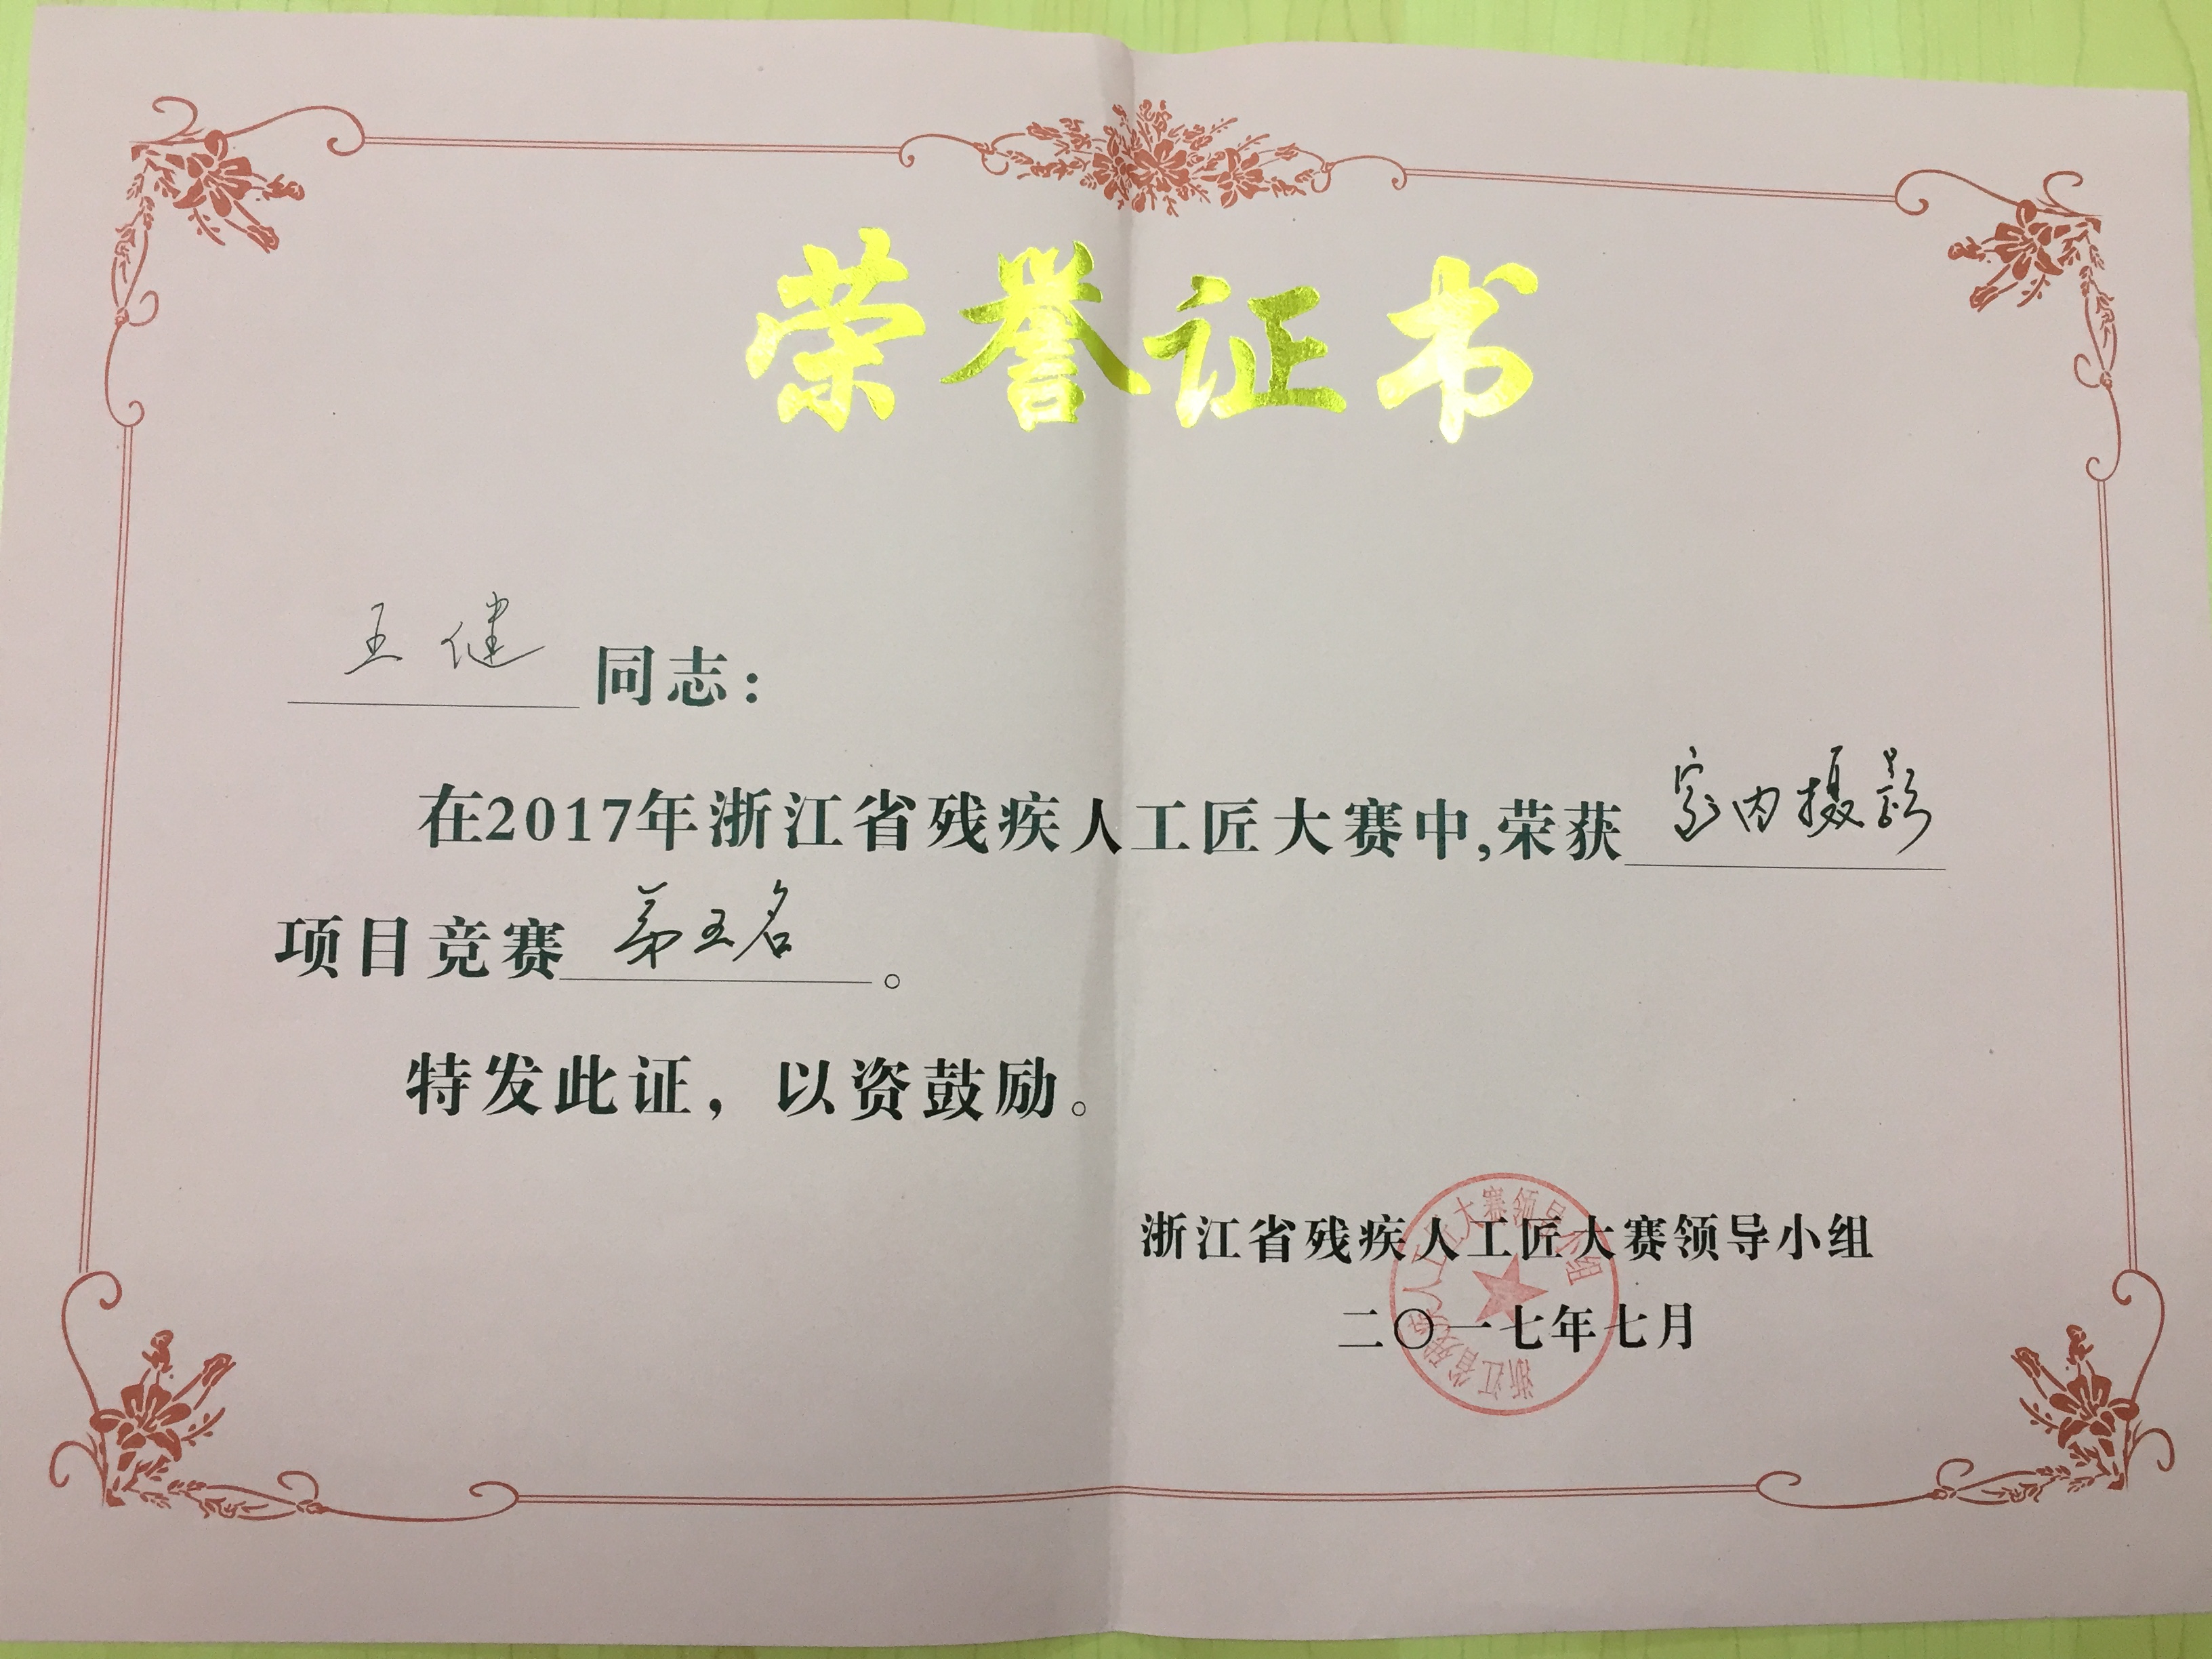 荣誉证书
王健 同志：
在2017年浙江省残疾人工匠大赛中,荣获 室内摄影
项目竞赛 第五名 。
特发此证，以资鼓励。
浙江省残疾人工匠大赛领导小组
二〇一七年七月
浙江省残疾人工匠大赛领导小组